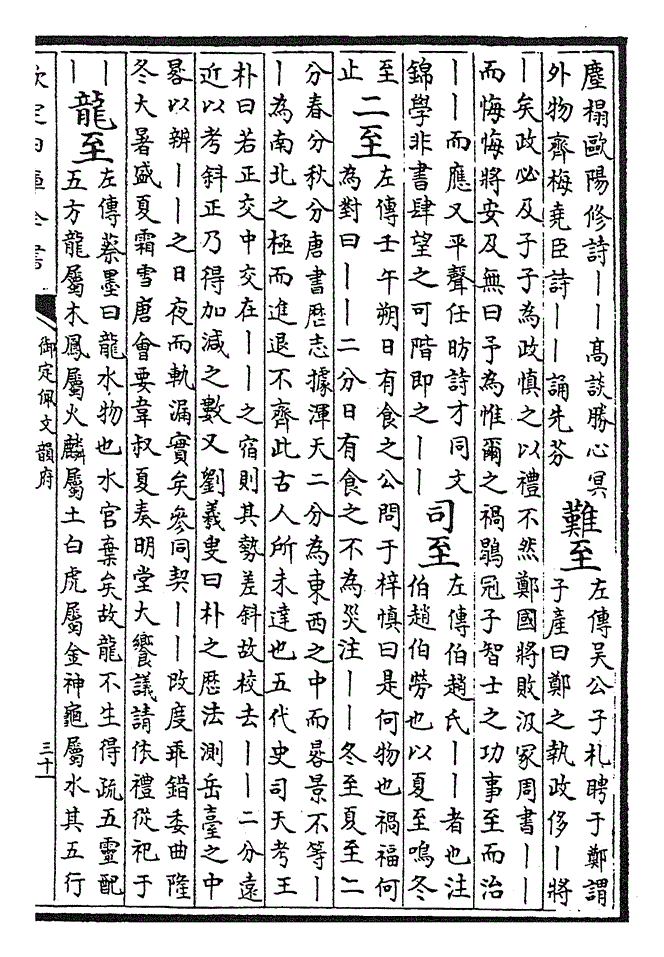 塵榻歐陽修詩丨丨高談勝心冥
外物齊梅堯臣詩丨丨誦先芬
難至
左傳吳公子札聘于鄭謂
子產曰鄭之執政侈丨將
丨矣政必及子子為政慎之以禮不然鄭國將敗汲冢周書丨丨
而悔悔將安及無曰予為惟爾之禍鶡冠子智士之功事至而治
丨丨而應又平聲任昉詩才同文
錦學非書肆望之可階即之丨丨
司至
左傳伯趙氏丨丨者也注
伯趙伯勞也以夏至鳴冬
至
止
二至
左傳壬午朔日有食之公問于梓慎曰是何物也禍福何
為對曰丨丨二分日有食之不為災注丨丨冬至夏至二
分春分秋分唐書歷志據渾天二分為東西之中而晷景不等丨
丨為南北之極而進退不齊此古人所未達也五代史司天考王
朴曰若正交中交在丨丨之宿則其勢差斜故校去丨丨二分遠
近以考斜正乃得加減之數又劉羲叟曰朴之歷法測岳臺之中
晷以辨丨丨之日夜而軌漏實矣參同契丨丨改度乖錯委曲隆
冬大暑盛夏霜雪唐會要韋叔夏奏明堂大饗議請依禮從祀于
丨
丨
龍至
左傳蔡墨曰龍水物也水官棄矣故龍不生得疏五靈配
五方龍屬木鳳屬火麟屬土白虎屬金神龜屬水其五行
欽定四庫全書
御定佩文韻府
三十